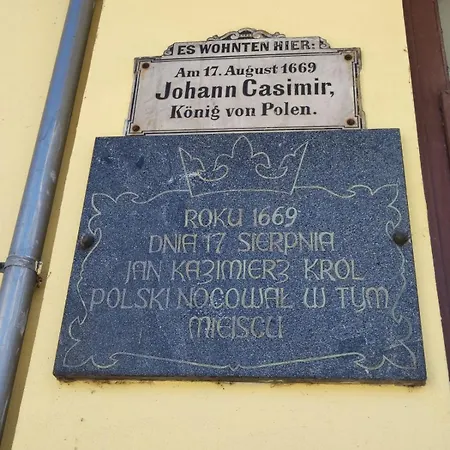 ES WOHNTEN HIER:
Am 17. August 1669
Johann Casimir,
König von Polen.
ROKU 1669
DNIA 17 SIERPNIA
JAN KAZIMIERZ KROL
POLSKI NOCOWAŁ W TYM
MIEJSCU